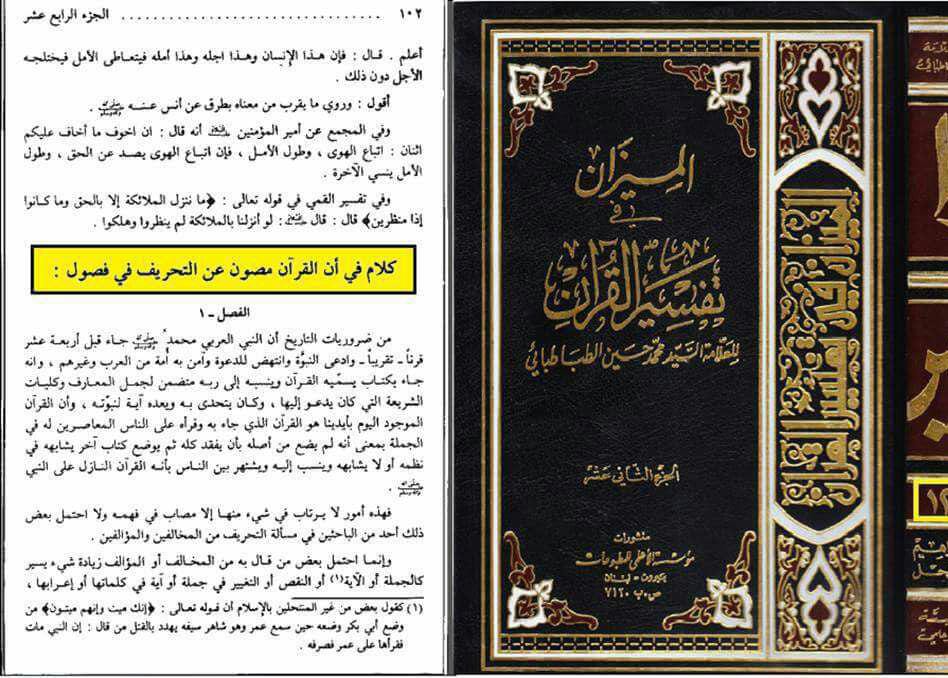 ١٠٢ . . . . . . . . . . . . . . . . . . . . . . . . . . . . . . . الجزء الرابع عشر
أعلم . قال : فإن هذا الإنسان وهذا اجله وهذا أمله فيتعاطى الأمل فيختلجه
الأجل دون ذلك .
أقول : وروي ما يقرب من معناه بطرق عن أنس عنه ﷺ .
وفي المجمع عن أمير المؤمنين أنه قال : ان اخوف ما أخاف عليكم
اثنان : اتباع الهوى ، وطول الأمل ، فإن اتباع الهوى يصد عن الحق ، وطول
الأمل ينسي الآخرة .
وفي تفسير القمي في قوله تعالى : ﴿ما ننزل الملائكة إلا بالحق وما كانوا
إذا منظرين﴾ قال : قال : لو أنزلنا بالملائكة لم ينظروا وهلكوا .
كلام في أن القرآن مصون عن التحريف في فصول :
الفصل - ١
من ضروريات التاريخ أن النبي العربي محمد ﷺ جاء قبل أربعة عشر
قرناً - تقريباً - وادعى النبوّة وانتهض للدعوة وآمن به أمة من العرب وغيرهم ، وانه
جاء بكتاب يسمّيه القرآن وينسبه إلى ربه متضمن لجمل المعارف وكليات
الشريعة التي كان يدعو إليها ، وكان يتحدى به ويعده آية لنبوّته ، وأن القرآن
الموجود اليوم بأيدينا هو القرآن الذي جاء به وقرأه على الناس المعاصرين له في
الجملة بمعنى أنه لم يضع من أصله بأن يفقد كله ثم يوضع كتاب آخر يشابهه في
نظمه أو لا يشابهه وينسب إليه ويشتهر بين الناس بأنه القرآن النازل على النبي
ﷺ .
فهذه أمور لا يرتاب في شيء منها إلا مصاب في فهمه ولا احتمل بعض
ذلك أحد من الباحثين في مسألة التحريف من المخالفين والمؤالفين .
وإنما احتمل بعض من قال به من المخالف أو المؤالف زيادة شيء يسير
كالجملة أو الآية(١) أو النقص أو التغيير في جملة أو آية في كلماتها أو إعرابها ،
(١) كقول بعض من غير المنتحلين بالإسلام أن قوله تعالى : ﴿إنك ميت وإنهم ميتون﴾ من
وضع أبي بكر وضعه حين سمع عمر وهو شاهر سيفه يهدد بالقتل من قال : إن النبي مات
فقرأها على عمر فصرفه .
الميزان
في
تفسير القرآن
للعلامة السيد محمد حسين الطباطبائي
الجزء الثاني عشر
منشورات
مؤسسة الأعلمي للمطبوعات
بيروت - لبنان
ص.ب ٧١٢٠
الميزان في تفسير القرآن